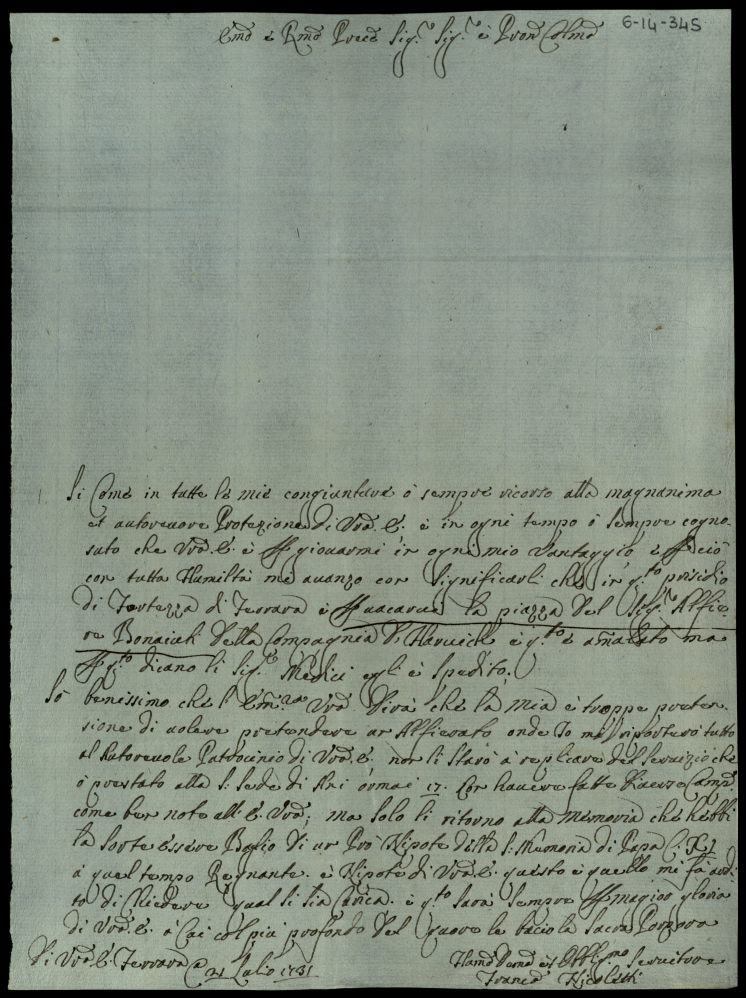 6-14-345
Emo è Rmo Preče Sig.re Sig.re è Pron Colmo
Si Come in tutte lé mié congiunture ó sempré ricorso alla magnanima
et autorevore Protezione di Vrã. E. è in ogni tempo ó sempre cogno-
suto ché Vrã. E. è giovarmi in ogni mio Vantaggio, è ciò
con tutta Humiltà mé avanzo con significarli ché in q.to présidio
di Fortezza di Ferrara è la piazza del Sig.re Alfie-
re Bonaiuti della Compagnia D. è q.to è amãlato ma
q.to dicano li Sig.ri Médici egli è Spedito.
Só benissimo ché l'Em.za Vrã Dirà ché la mia è troppe preten-
sione di volere pretendere un Alfierato onde Io mé riporterò tutto
al Autorevole Patrocinio di Vrã. E. non li Staró à replicare del Servizio ché
ó prestato alla S. Sede di Ani ormai 17. Con havere fatte Camp.e
come ben noto all'E. Vrã; ma solo li ritorno alla mémoria ché hebbi
la Sorte éssére Baglio di un Pro Nipote della S. Memoria di Papa C. XI
à quel tempo Regnante. è Nipote di Vrã. E. questo è quello mi fà ardi-
to di Chiedere qual si sia Carica. è q.to sarà Sempre magior gloria
di Vrã. E. à Cui col più profondo del Cuore le bacio la Sacra Porpora
Di Vrã E. Ferrara 21 Lulio 1731
Hum̃o Devm̃o et Obblig.mo Servitore
Francõ Nicoletti